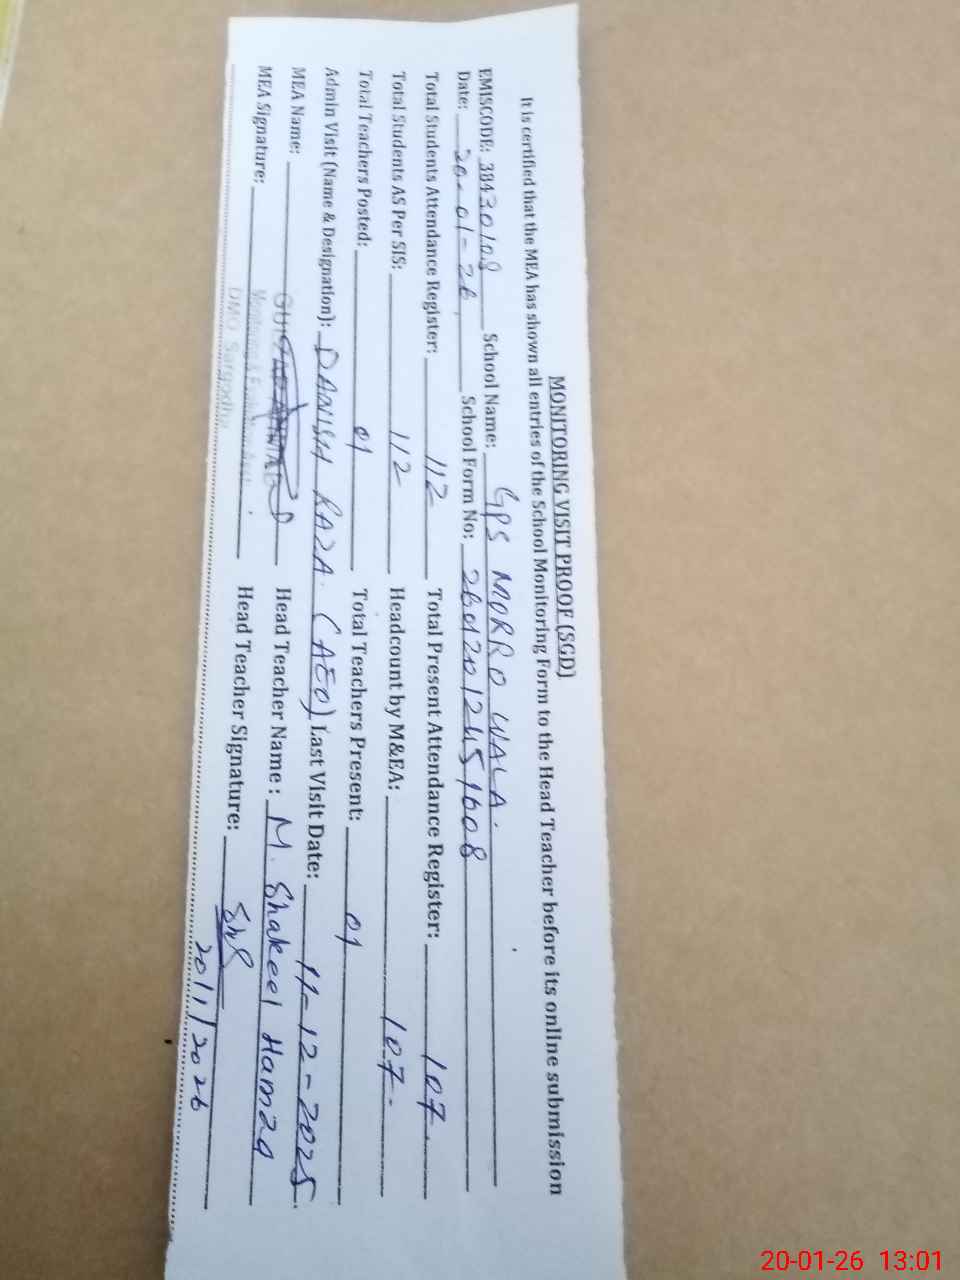 MONITORING VISIT PROOF (SGD)
It is certified that the MEA has shown all entries of the School Monitoring Form to the Head Teacher before its online submission
EMISCODE: 38430108 School Name: GPS MORRO WALA.
Date: 20-01-26 School Form No: 26012012451608
Total Students Attendance Register: 112 Total Present Attendance Register: 107.
Total Students AS Per SIS: 112 Headcount by M&EA: 107.
Total Teachers Posted: 01 Total Teachers Present: 01
Admin Visit (Name & Designation): DANISH RAZA. (AEO) Last Visit Date: 11-12-2025.
MEA Name: Head Teacher Name: M. Shakeel Hamza
MEA Signature: DMO Sargodha Head Teacher Signature:
20/1/2026
20-01-26 13:01